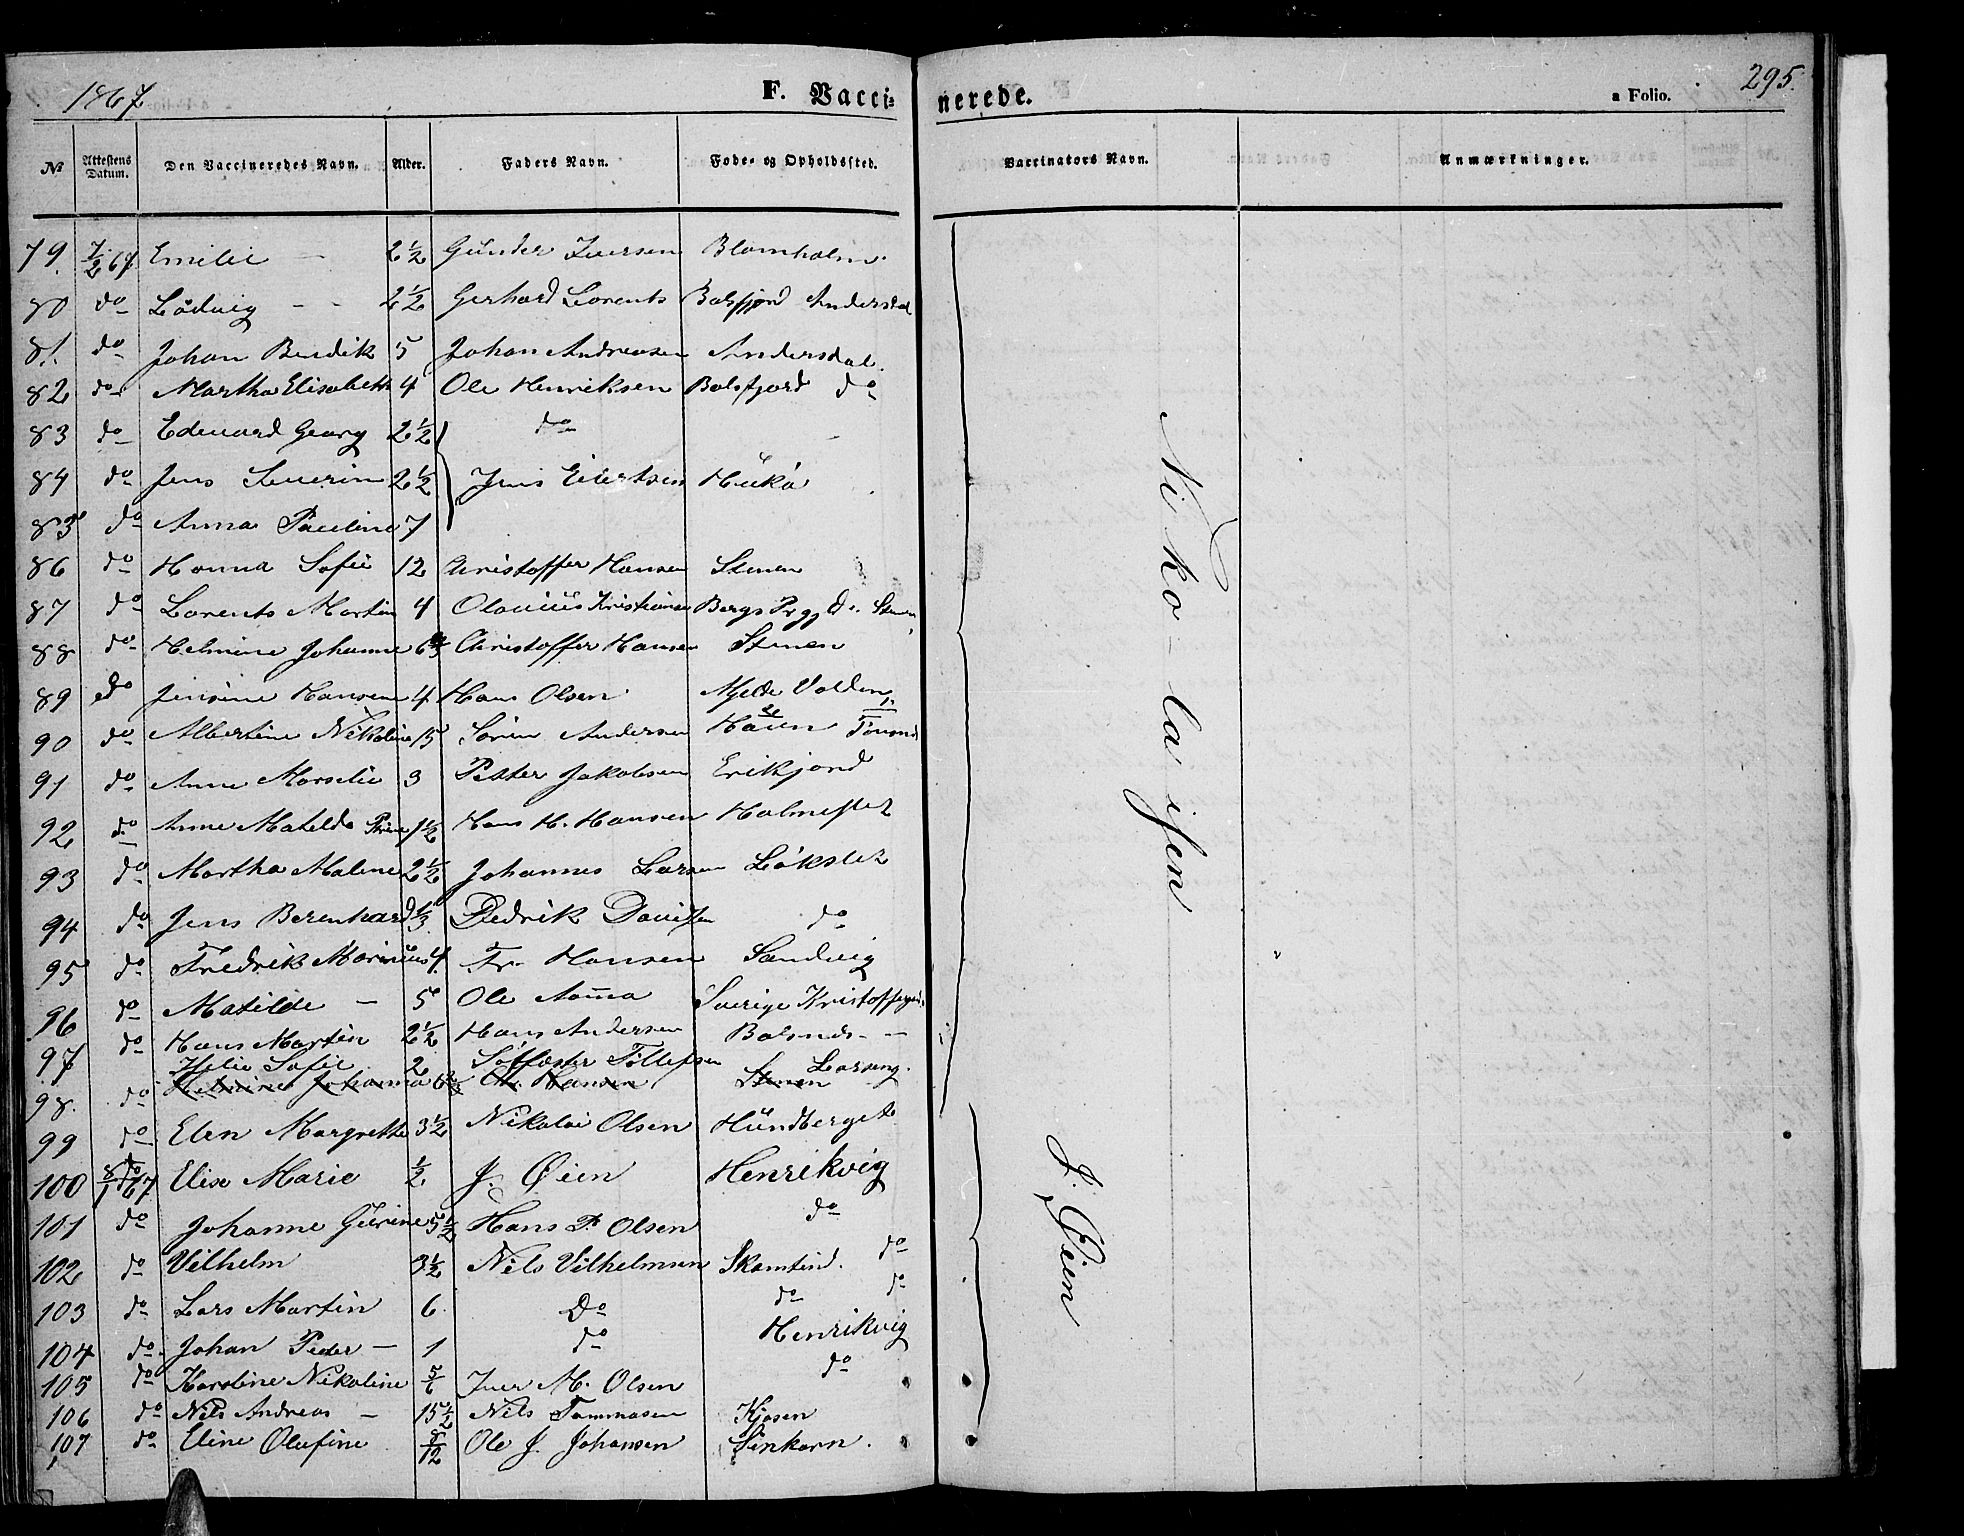 1867 F. Vacci= nerede. a Folio. 295.
No Attestens Datum. Den Vaccineredes Navn. Alder. Faders Navn. Føde= og Opholdssted. Vaccinators Navn. Anmærkninger.
79. 7/2 67 Emilie — 2 1/2 Günder Iversen Blomholm
80 do Lödvig — 2 1/2 Gerhard Lorents Balsfjord Andersdal
81. do Johan Bendik 5 Johan Andreasen Andersdal.
82 do Martha Elisabeth 4 Ole Henriksen Balsfjord do
83 do Edvard Georg 2 1/2 do
84 do Jens Severin 2 1/2 Jens Eilertsen
85 do Anna Pauline 7
86 do Hanna Sofie 12 Christoffer Hansen Stenen
87 do Lorents Martin 4 Olavius Kristiansen Bergs Prgj
88 do Helmine Johanne 6 Christoffer Hansen Stenen
89 do Jensine Hansine 4 Hans Olsen Mjelde
90 do Albertine Nikoline 15 Sören Andersen
91 do Anne Marselie 3 Petter Jakobsen Erikjord
92 do Anne Matilde 1 1/2 Hans H. Hansen Holmeslet
93 do Martha Malene 2 1/2 Johannes Larsen Lökslet
94 do Jens Berenhard 1/3 Fredrik Davisen do
95 do Fredrik Marinius 4. Fr. Hansen Sandvig
96 do Matilde — 5 Ole Sverige
97 do Hans Martin 2 1/2 Hans Andersen Balsnes —
Sofie 2 Töllefsen
98. do Helmine Johanna 6 Chr. Hansen Stenen
99 do Elen Margrethe 3 1/2 Nikolai Olsen Hündberget
Nikolaisen
100 8/1 67 do Elise Marie 1/2 J. Øien Henrikvig
101 do Johanne Gürine 5 1/2 Hans P. Olsen do
102 do Vilhelm 3 1/2 Nils Vilhelmsen Skamtind. do
103 do Lars Martin 6. Do do do
104 do. Johan Peder — 1 do Henrikvig
105 do Karoline Nikoline 5/6 Iver M. Olsen do
106 do Nils Andreas — 15 1/2 Nils Tommasen Kjosen
107 do Eline Olufine 8/12 Ole J. Johansen Sinkarn.
J. Øien